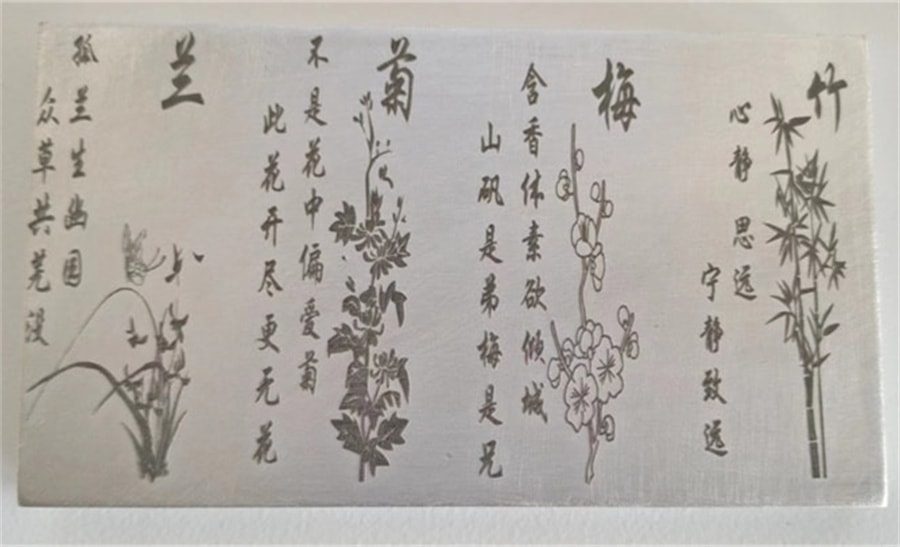 竹
心静思远
宁静致远
梅
含香体素欲倾城
山矾是弟梅是兄
菊
不是花中偏爱菊
此花开尽更无花
兰
孤兰生幽园
众草共芜没